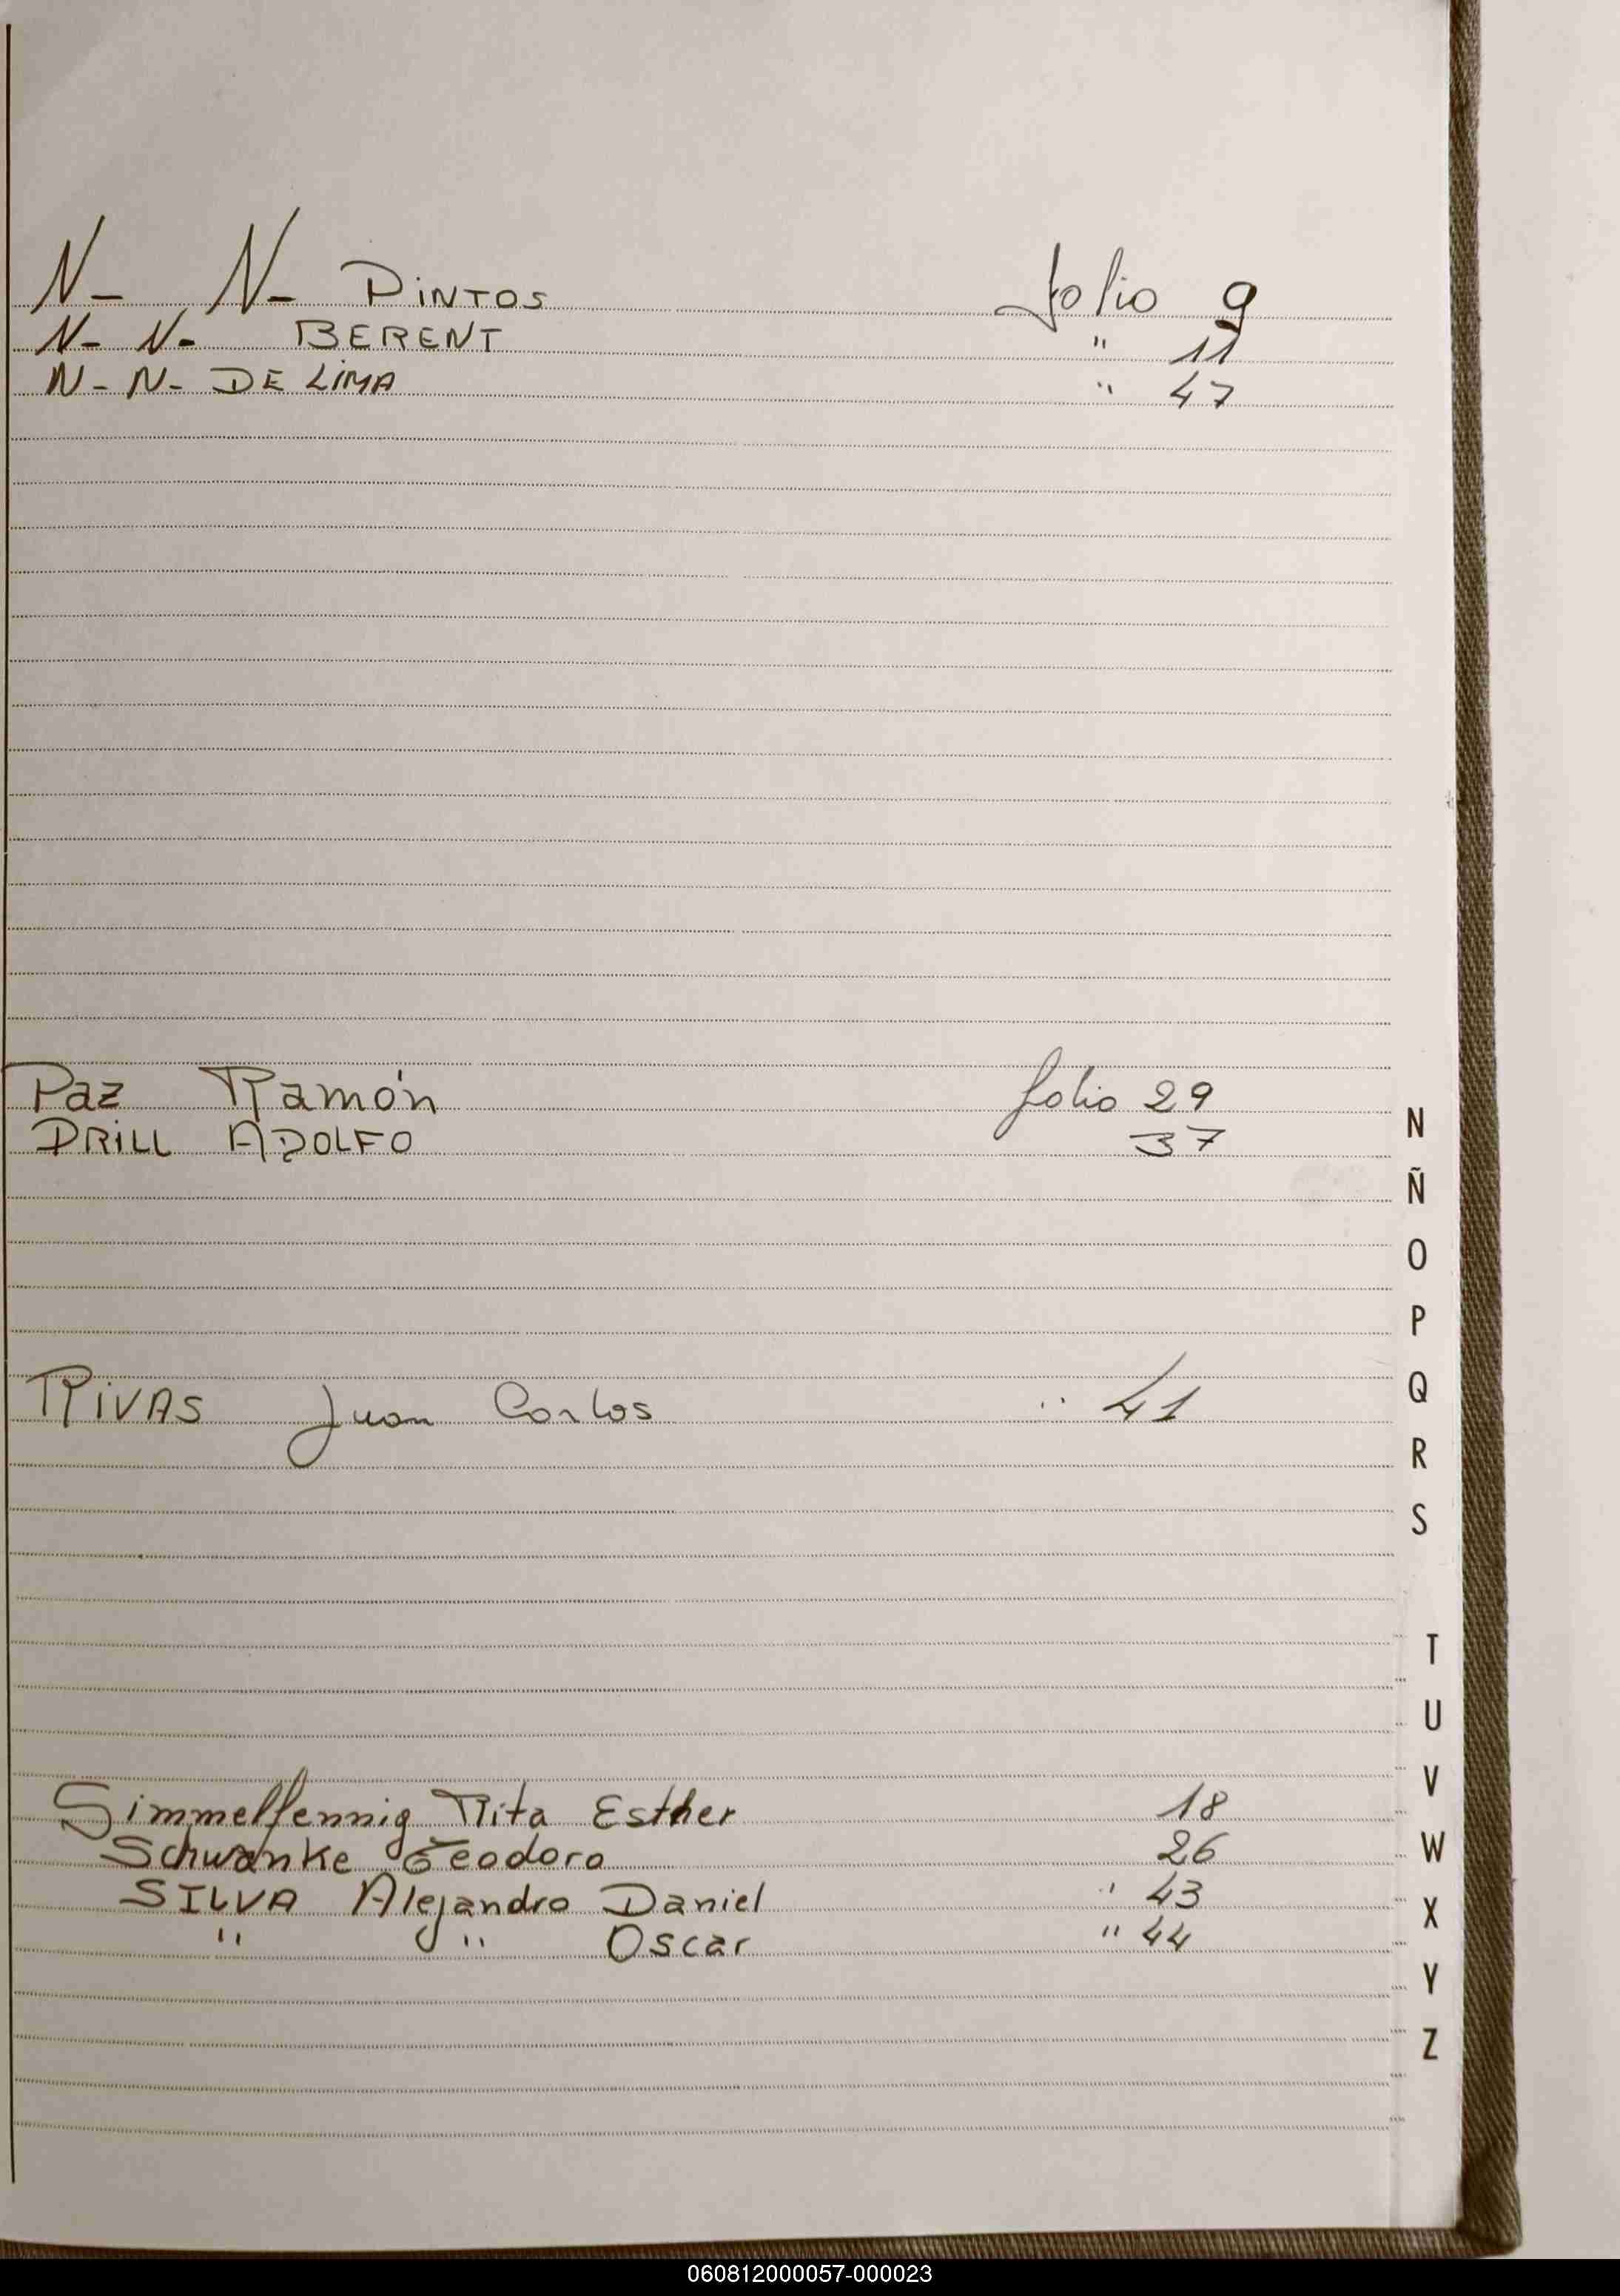 N- N- PINTOS folio 9
N- N- BERENT " 11
N- N- DE LIMA " 47
Paz Ramón folio 29
PRILL ADOLFO 37
RIVAS Juan Carlos " 41
Simmelfennig Rita Esther 18
Schwanke Teodoro 26
SILVA Alejandro Daniel " 43
" " Oscar " 44
N
Ñ
O
P
Q
R
S
T
U
V
W
X
Y
Z
060812000057-000023